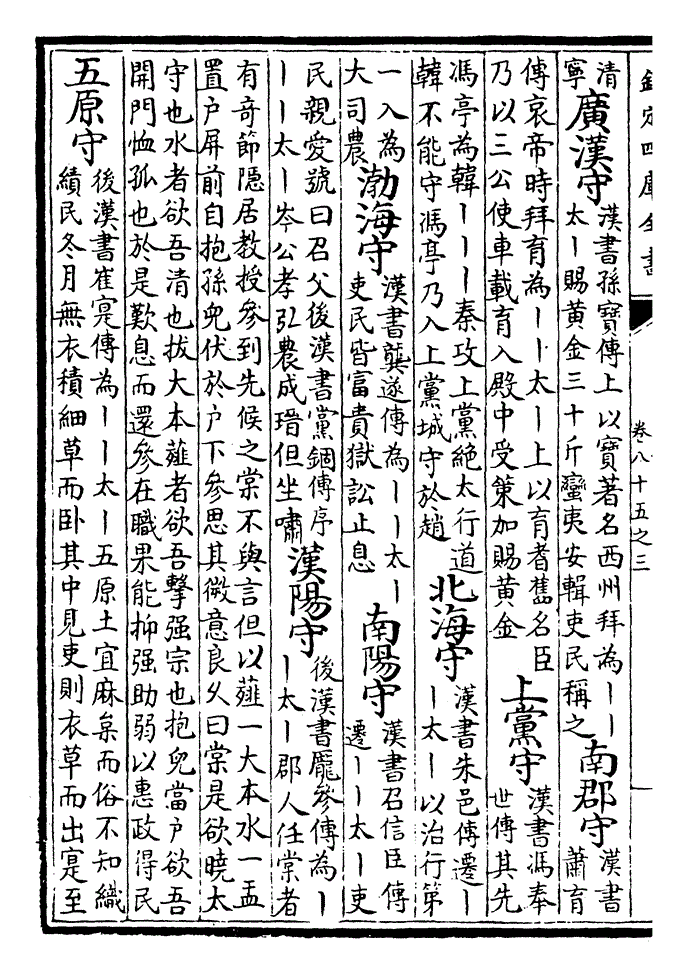 欽定四庫全書
卷八十五之三
清
寧
廣漢守
漢書孫寶傳上以寶著名西州拜為丨丨
太丨賜黄金三十斤蠻夷安輯吏民稱之
南郡守
漢書
蕭育
傳哀帝時拜育為丨丨太丨上以育耆舊名臣
乃以三公使車載育入殿中受策加賜黄金
上黨守
漢書馮奉
世傳其先
馮亭為韓丨丨丨秦攻上黨絶太行道
韓不能守馮亭乃入上黨城守於趙
北海守
漢書朱邑傳遷丨
丨太丨以治行第
一入為
大司農
渤海守
漢書龔遂傳為丨丨太丨
吏民皆富貴獄訟止息
南陽守
漢書召信臣傳
遷丨丨太丨吏
民親愛號曰召父後漢書黨錮傳序
丨丨太丨岑公孝弘農成瑨但坐嘯
漢陽守
後漢書龐參傳為丨
丨太丨郡人任棠者
有奇節隱居教授參到先候之棠不與言但以薤一大本水一盂
置户屏前自抱孫兒伏於户下參思其微意良久曰棠是欲曉太
守也水者欲吾清也拔大本薤者欲吾擊强宗也抱兒當户欲吾
開門恤孤也於是歎息而還參在職果能抑强助弱以惠政得民
五原守
後漢書崔寔傳為丨丨太丨五原土宜麻枲而俗不知織
績民冬月無衣積細草而卧其中見吏則衣草而出寔至